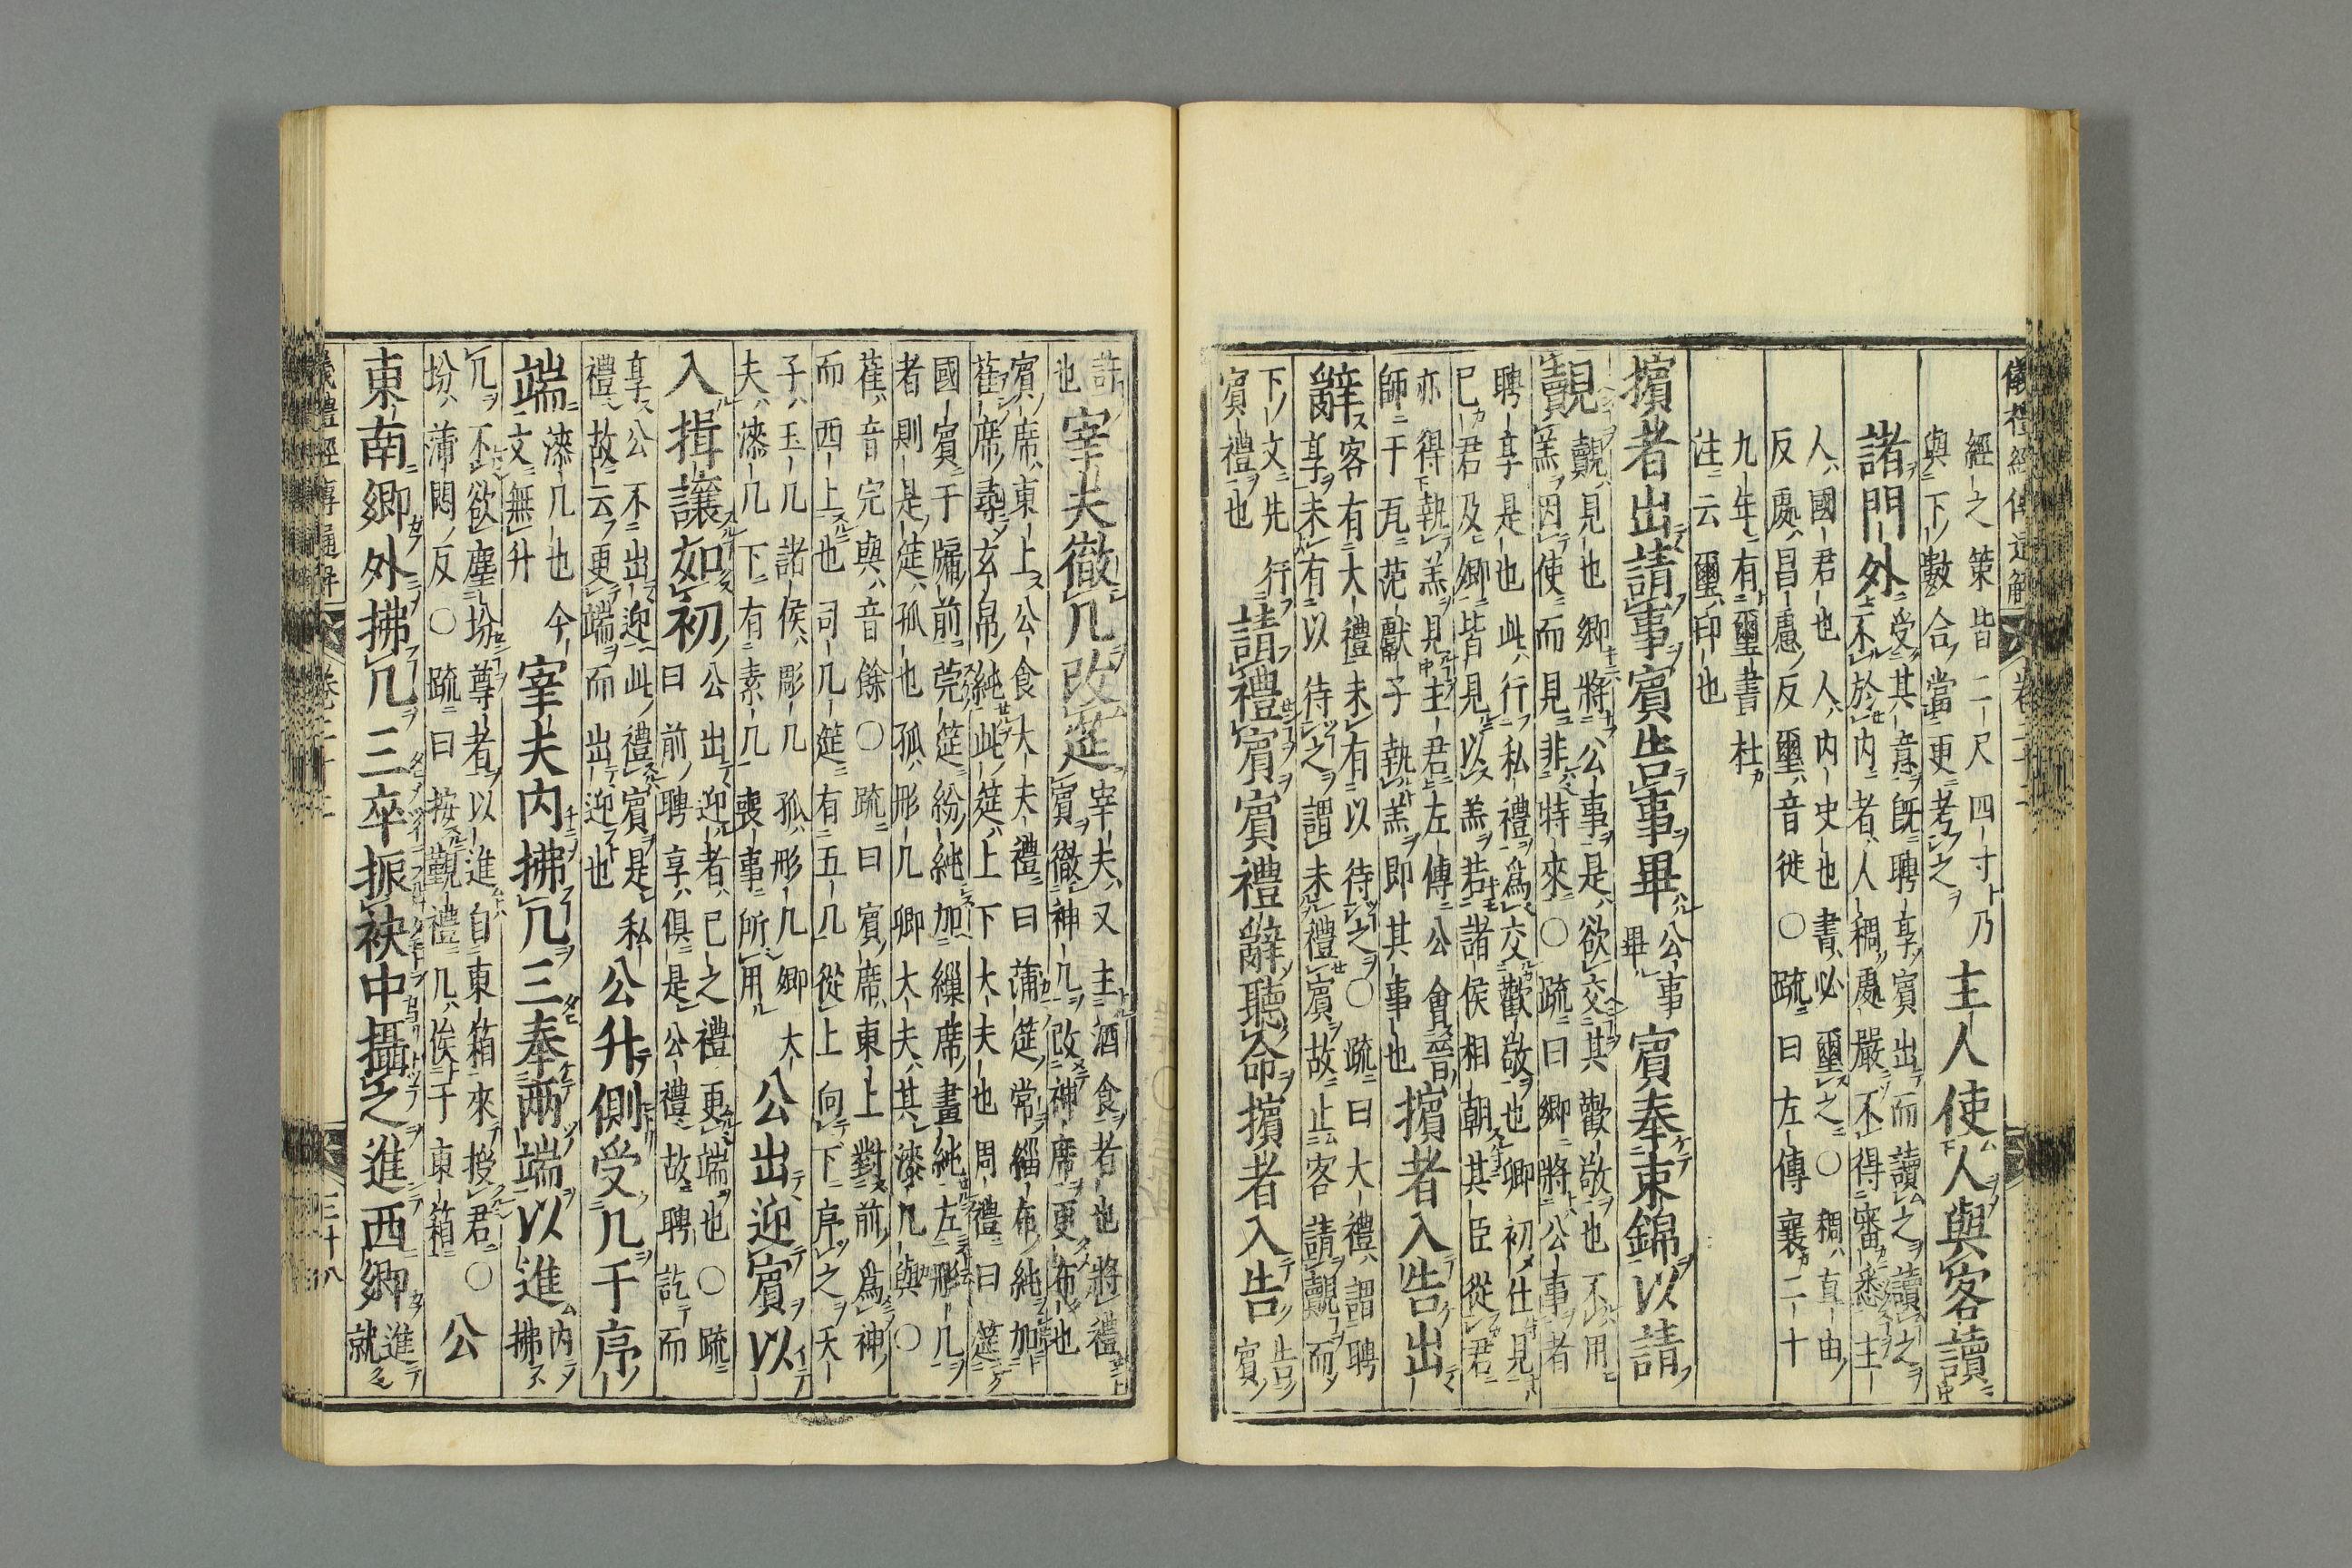 儀禮經傳通解 卷二十二
經之策皆二尺四寸乃
與下數合當更考之
主人使人與客讀
諸門外
受其意既聘享賓出而讀之讀之
不於内者人稠處嚴不得審悉主
人國君也人内史也書必璽之〇稠直由
反處昌慮反璽音徙〇疏曰左傳襄二十
九年有璽書杜
注云璽印也
擯者出請事賓告事畢
公事
畢
賓奉束錦以請
覿
覿見也卿將公事是欲交其歡敬也不用
羔因使而見非特來〇疏曰卿將公事者
聘享是也此行私禮爲交歡敬也卿初仕見
已君及卿皆見以羔若諸侯相朝其臣從君
亦得執羔見主君左傳公會晉
師于瓦范獻子執羔即其事也
擯者入告出
辭
客有大禮未有以待之〇疏曰大禮謂聘
享未有以待之謂未禮賓故止客請覿而
下文先行
賓禮也
請禮賓賓禮辭聽命擯者入告
告
賓
許
也
宰夫徹几改筵
宰夫又主酒食者也將禮
賓徹神几改神席更布也
賓席東上公食大夫禮曰蒲筵常緇布純加
萑席尋玄帛純此筵上下大夫也周禮曰筵
國賓于牖前莞筵紛純加繅席畫純左彤几
者則是筵孤也孤彤几卿大夫其漆几與〇
萑音完與音餘〇疏曰賓席東上對前爲神
而西上也司几筵有五几從上向下序之天
子玉几諸侯彫几孤彤几卿大
夫漆几下有素几喪事所用
公出迎賓以
入揖讓如初
公出迎者已之禮更端也〇疏
曰前聘享俱是公禮故聘訖而
享公不出迎此禮賓是私
禮故云更端而出迎也
公升側受几于序
端
漆几也今
文無升
宰夫内拂几三奉兩端以進
内
拂
几不欲塵坋尊者以進自東箱來授君〇
坋蒲悶反〇疏曰按覲禮几俟于東箱
公
東南鄉外拂几三卒振袂中攝之進西鄉
進
就
儀禮經傳通解 卷二十二 三十八